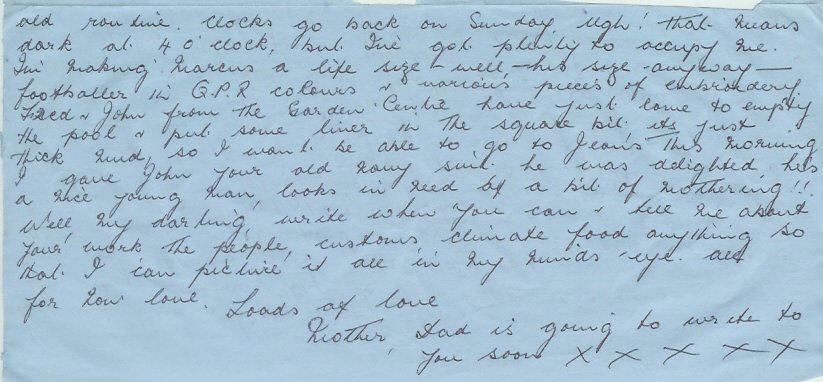 old routine. Clocks go back on Sunday, Ugh! that means
dark at 4 o'clock, but I've got plenty to occupy me.
I'm making Marcus a life size - well - his size - anyway -
footballer in Q.P.R colours & various pieces of embroidery.
Fred & John from the Garden Centre have just come to empty
the pool & put some liner in the square bit its just
thick mud, so I wont be able to go to Jean's this morning
I gave John your old navy suit he was delighted, he's
a nice young man, looks in need of a bit of mothering!!
Well, my darling, write when you can & tell me about
your work the people, customs, climate food anything so
that I can picture it all in my minds eye. all
for now love. Loads of love
Mother, Dad is going to write to
you soon X X X X X